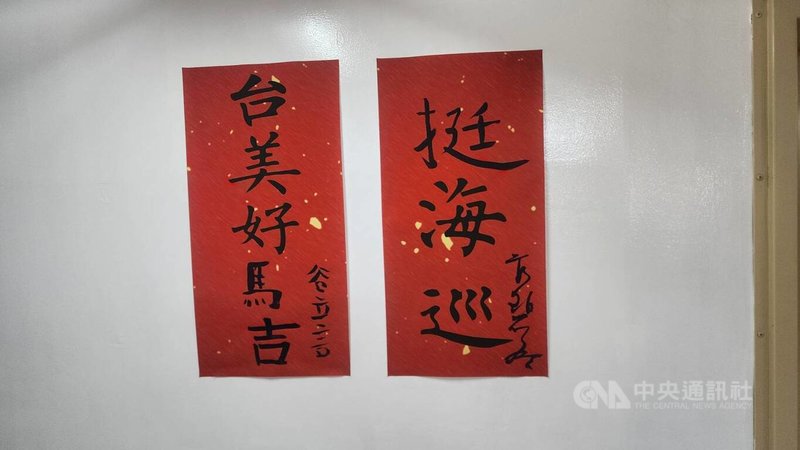 挺海巡
台美好馬吉
谷立言
CNA 中央通訊社
THE CENTRAL NEWS AGENCY